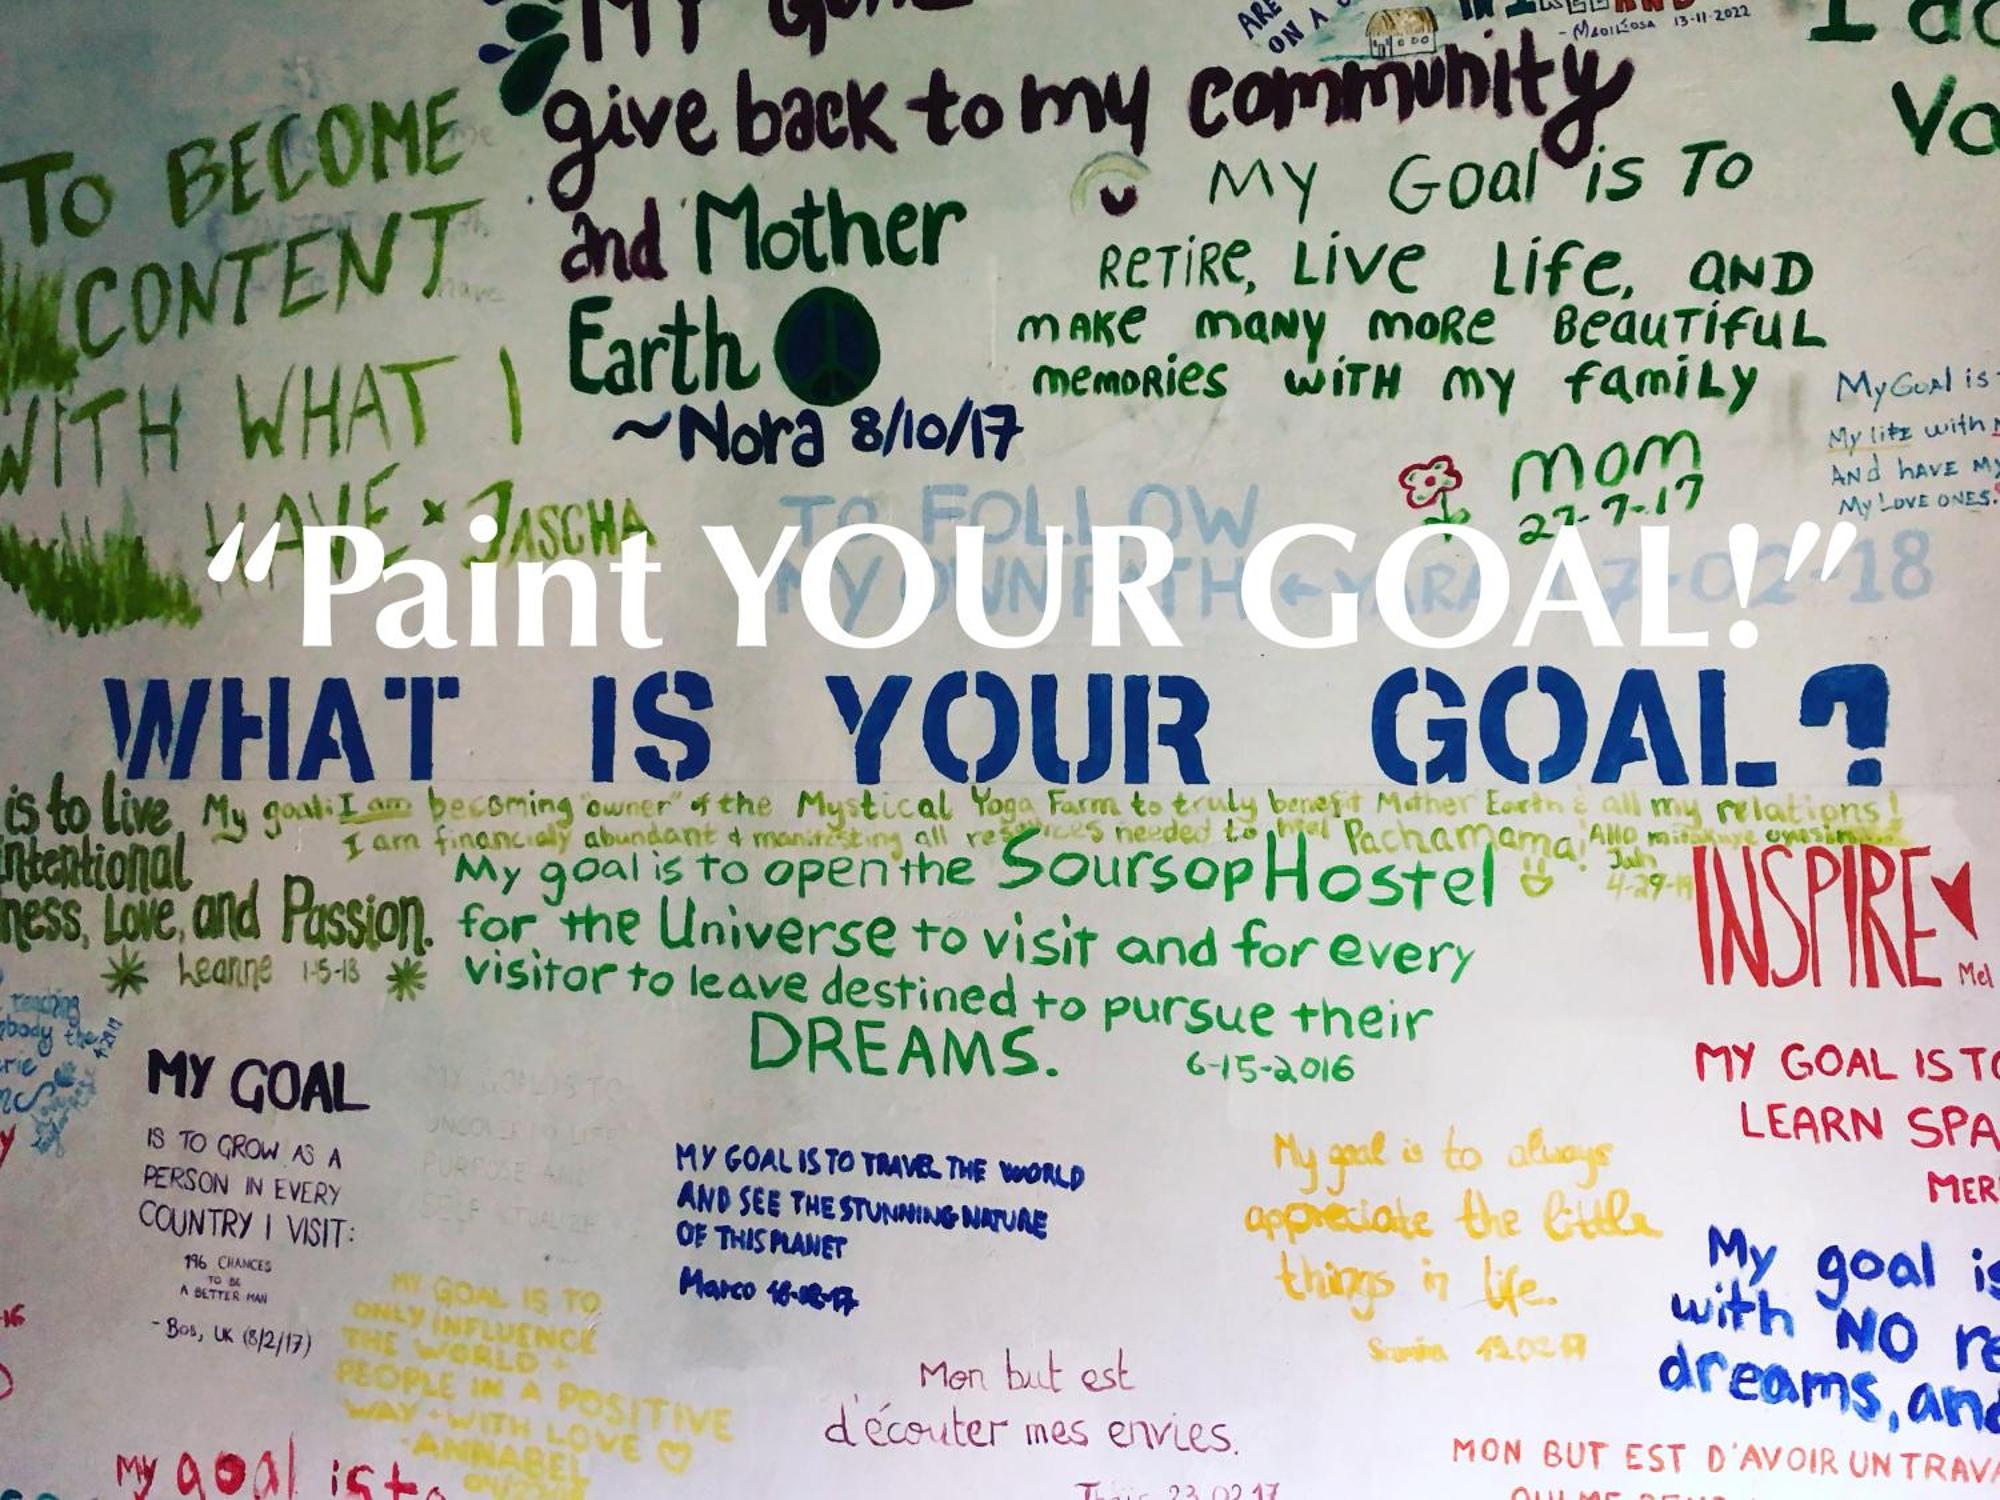 MY
give back to my community
and Mother
Earth
~Nora 8/10/17
ARE
ON A
13-11-2022
TO BECOME
CONTENT
WITH WHAT I
HAVE x JASCHA
MY GOAL is To
RETIRE, Live Life, AND
MAKE MANY MORE BEAUTIFUL
MEMORIES WITH MY FAMILY
MOM
27-7-17
My GOAL is
My life with
AND HAVE MY
My LOVE ONES.
TO FOLLOW
MY OWN PATH ← YARA
-02-18
“Paint YOUR GOAL!”
WHAT IS YOUR GOAL?
is to live
intentional
ness, Love, and Passion.
Leanne 1-5-18
My goal: I am becoming "owner" of the Mystical Yoga Farm to truly benefit Mother Earth & all my relations!
I am financially abundant & manifesting all resources needed to heal Pachamama!
My goal is to open the Soursop Hostel
for the Universe to visit and for every
visitor to leave destined to pursue their
DREAMS.
6-15-2016
INSPIRE
Mel
teaching
body the
MY GOAL
IS TO GROW AS A
PERSON IN EVERY
COUNTRY I VISIT:
196 CHANCES
TO BE
A BETTER MAN
- Bos, UK (8/2/17)
MY GOAL IS TO
PURPOSE AND
MY GOAL IS TO TRAVEL THE WORLD
AND SEE THE STUNNING NATURE
OF THIS PLANET
Marco
My goal is to always
appreciate the little
things in life.
MY GOAL IS TO
LEARN SPA
MER
My goal is
with NO re
dreams, and
MY GOAL IS TO
ONLY INFLUENCE
THE WORLD +
PEOPLE IN A POSITIVE
WAY - WITH LOVE
- ANNABEL
Mon but est
d'écouter mes envies.
23.02.17
MON BUT EST D'AVOIR UN TRAVA
My goal is to